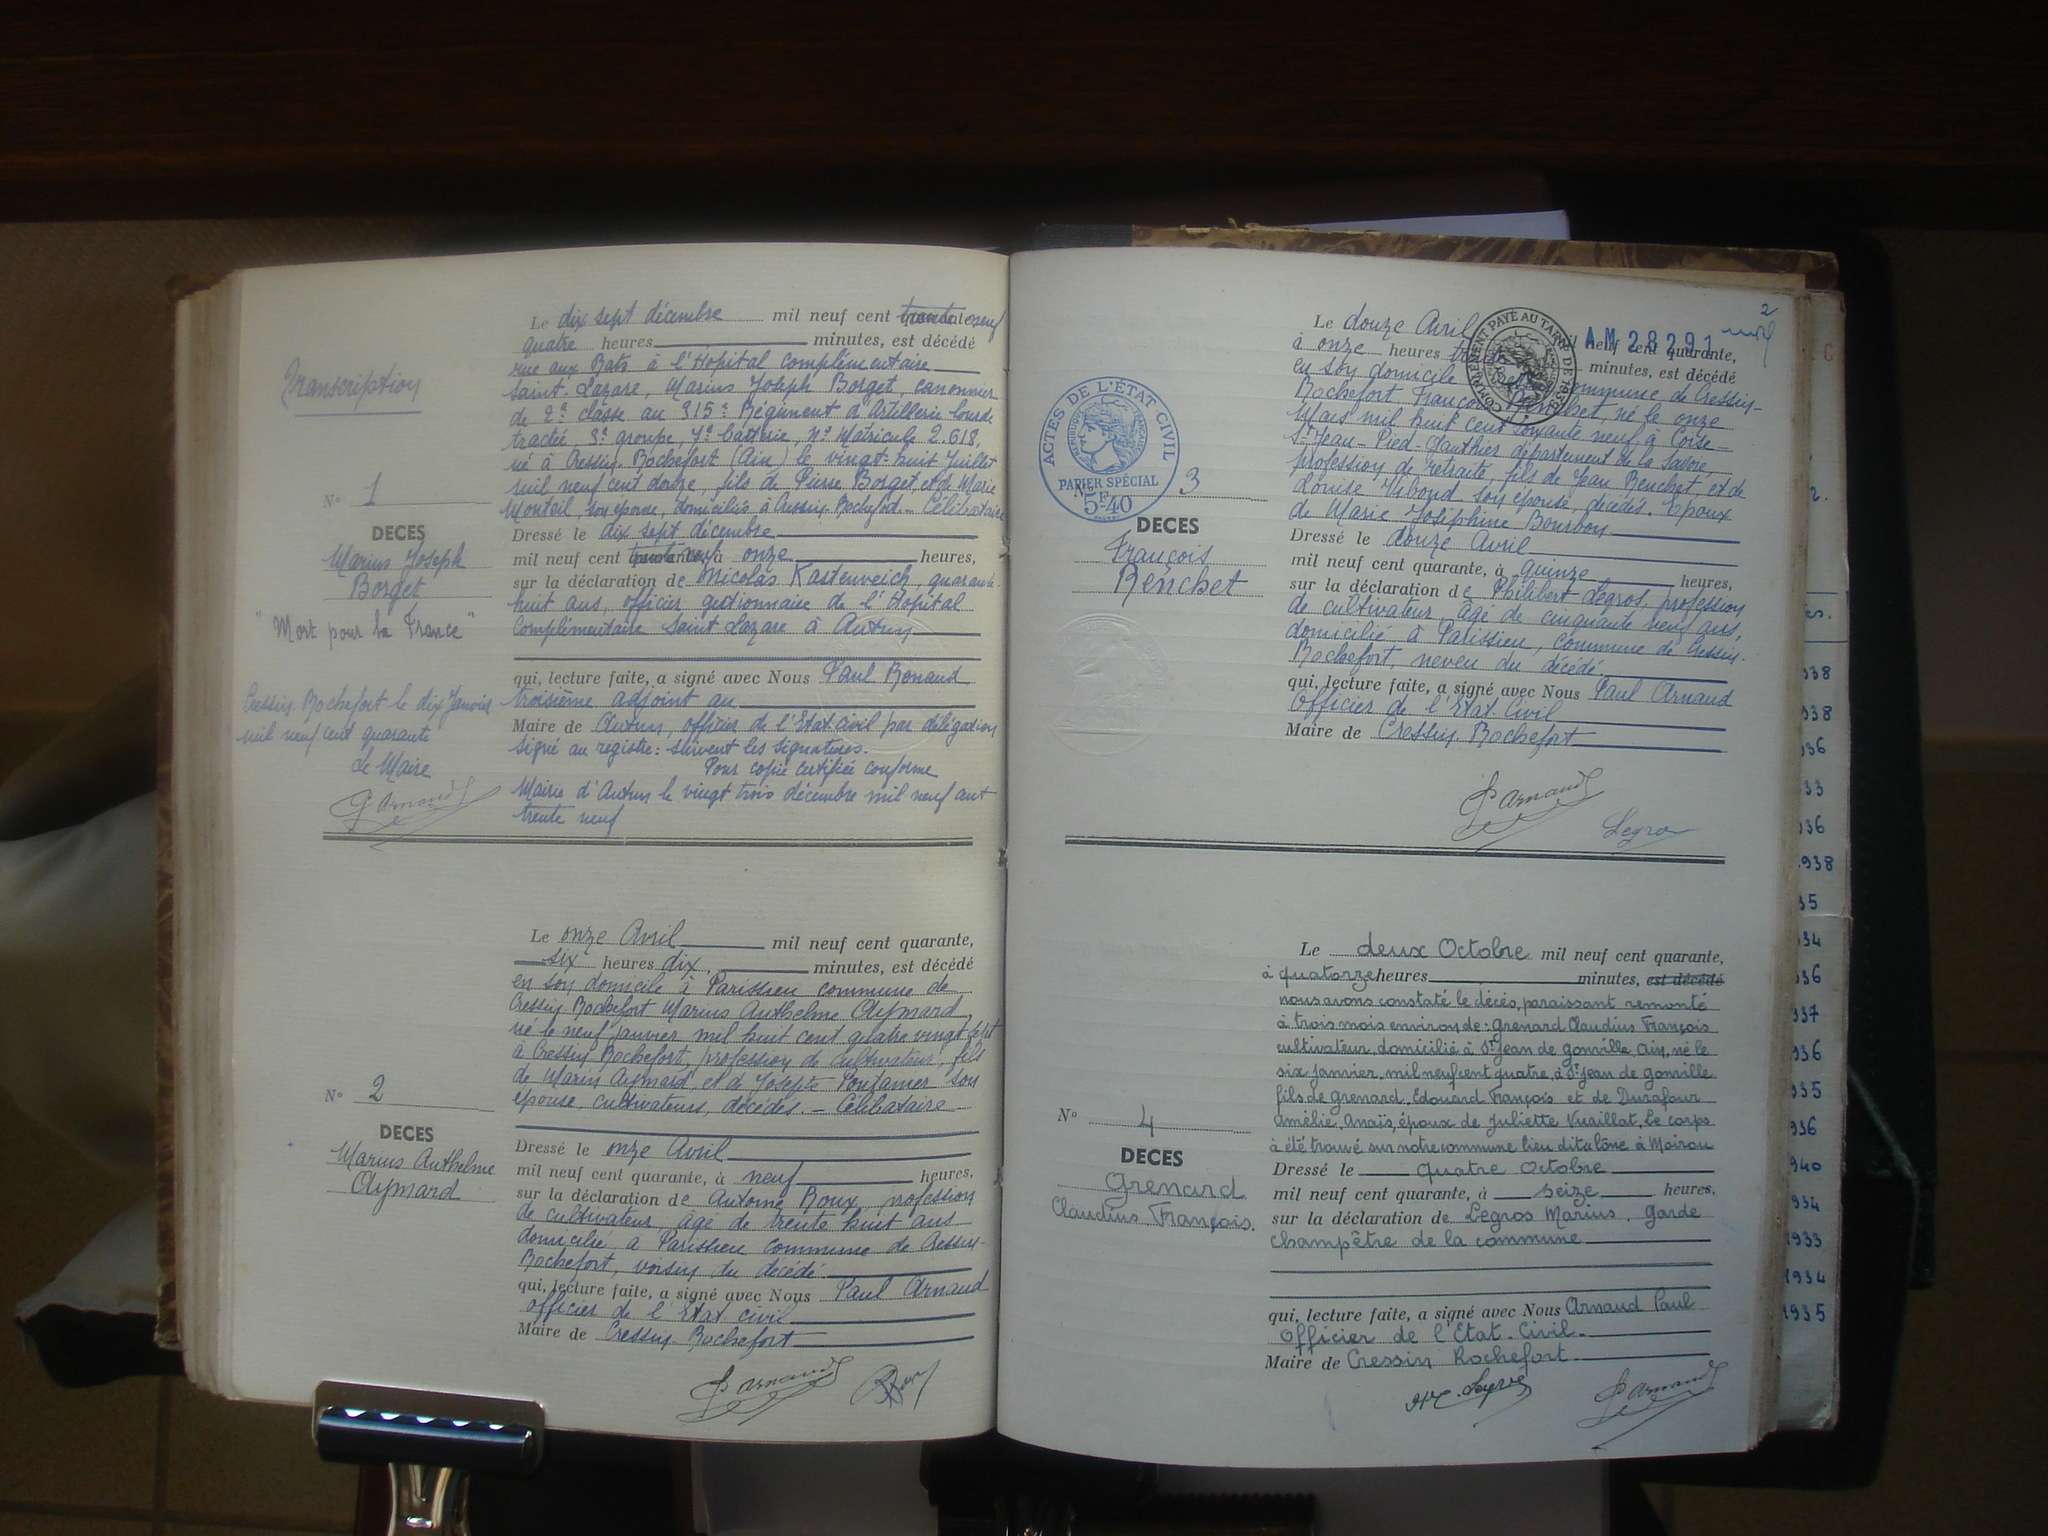 Transcription
N° 1
DECES
Marius Joseph
Borget
"Mort pour la France"
Cressin Rochefort le dix Janvier
mil neuf cent quarante
Le Maire
P Arnaud
Le dix sept décembre mil neuf cent trente neuf
quatre heures minutes, est décédé
rue aux Rats à l'Hôpital complémentaire
Saint-Lazare, Marius Joseph Borget, canonnier
de 2e classe au 315e Régiment d'Artillerie lourde
tractée, 3e groupe, 7e batterie, N° Matricule 2.618,
né à Cressin-Rochefort (Ain) le vingt-huit Juillet
mil neuf cent douze, fils de Pierre Borget, et de Marie
Monteil, son épouse, domiciliés à Cressin-Rochefort - Célibataire
Dressé le dix sept décembre
mil neuf cent trente neuf à onze heures,
sur la déclaration de Nicolas Kastenveich, quarante-
huit ans, officier gestionnaire de l'Hôpital
complémentaire Saint Lazare à Autun
qui, lecture faite, a signé avec Nous Paul Renaud
troisième adjoint au
Maire de Autun, officier de l'Etat-civil par délégation
signé au registre: suivent les signatures.
Pour copie certifiée conforme
Mairie d'Autun le vingt trois décembre mil neuf cent
trente neuf
N° 2
DECES
Marius Anthelme
Aymard
Le onze Avril mil neuf cent quarante,
six heures dix, minutes, est décédé
en son domicile à Parissieu commune de
Cressin Rochefort Marius Anthelme Aymard,
né le neuf janvier mil huit cent quatre vingt sept
à Cressin Rochefort, profession de cultivateur, fils
de Marin Aymard, et de Josepte son
épouse, cultivateurs, décédés. - Célibataire
Dressé le onze Avril
mil neuf cent quarante, à neuf heures,
sur la déclaration de Antoine Roux, profession
de cultivateur, âgé de trente huit ans
domicilié à Parissieu commune de Cressin-
Rochefort, voisin du décédé.
qui, lecture faite, a signé avec Nous Paul Arnaud
officier de l'Etat civil
Maire de Cressin-Rochefort
P Arnaud
2
AM 28291
COMPLÉMENT PAYÉ AU TARIF DE 1938
ACTES DE L'ÉTAT CIVIL
RÉPUBLIQUE FRANÇAISE
PAPIER SPÉCIAL
5F40
N° 3
DECES
François
Renchet
Le douze Avril mil neuf cent quarante,
à onze heures minutes, est décédé
en son domicile commune de Cressin-
Rochefort, François Renchet, né le onze
Mars mil huit cent soixante neuf à Coise-
St Jean-Pied-Gauthier département de la Savoie,
profession de retraité, fils de Jean Renchet, et de
Louise Viboud son épouse, décédés. Epoux
de Marie Joséphine Bourbon
Dressé le douze Avril
mil neuf cent quarante, à quinze heures,
sur la déclaration de Philibert Legros, profession
de cultivateur, âgé de cinquante neuf ans,
domicilié à Parissieu, commune de Cressin-
Rochefort, neveu du décédé.
qui, lecture faite, a signé avec Nous Paul Arnaud
Officier de l'Etat-Civil
Maire de Cressin-Rochefort
P Arnaud
Legros
N° 4
DECES
Grenard
Claudius François.
Le deux Octobre mil neuf cent quarante,
à quatorze heures minutes, est décédé
nous avons constaté le décès, paraissant remonté
à trois mois environ de: Grenard Claudius François
cultivateur, domicilié à St Jean de Gonville, Ain, né le
six janvier, mil neuf cent quatre, à St Jean de Gonville
fils de Grenard, Edouard François et de Durafour
Amélie, Anaïs, époux de Juliette Vuaillat. Le corps
à été trouvé sur notre commune lieu dit
Dressé le quatre Octobre
mil neuf cent quarante, à seize heures,
sur la déclaration de Legros Marius, Garde
champêtre de la commune
qui, lecture faite, a signé avec Nous Arnaud Paul
Officier de l'Etat-Civil
Maire de Cressin Rochefort
P Arnaud
938
938
936
33
936
1938
35
934
936
937
936
935
936
1940
1934
1933
1934
1935